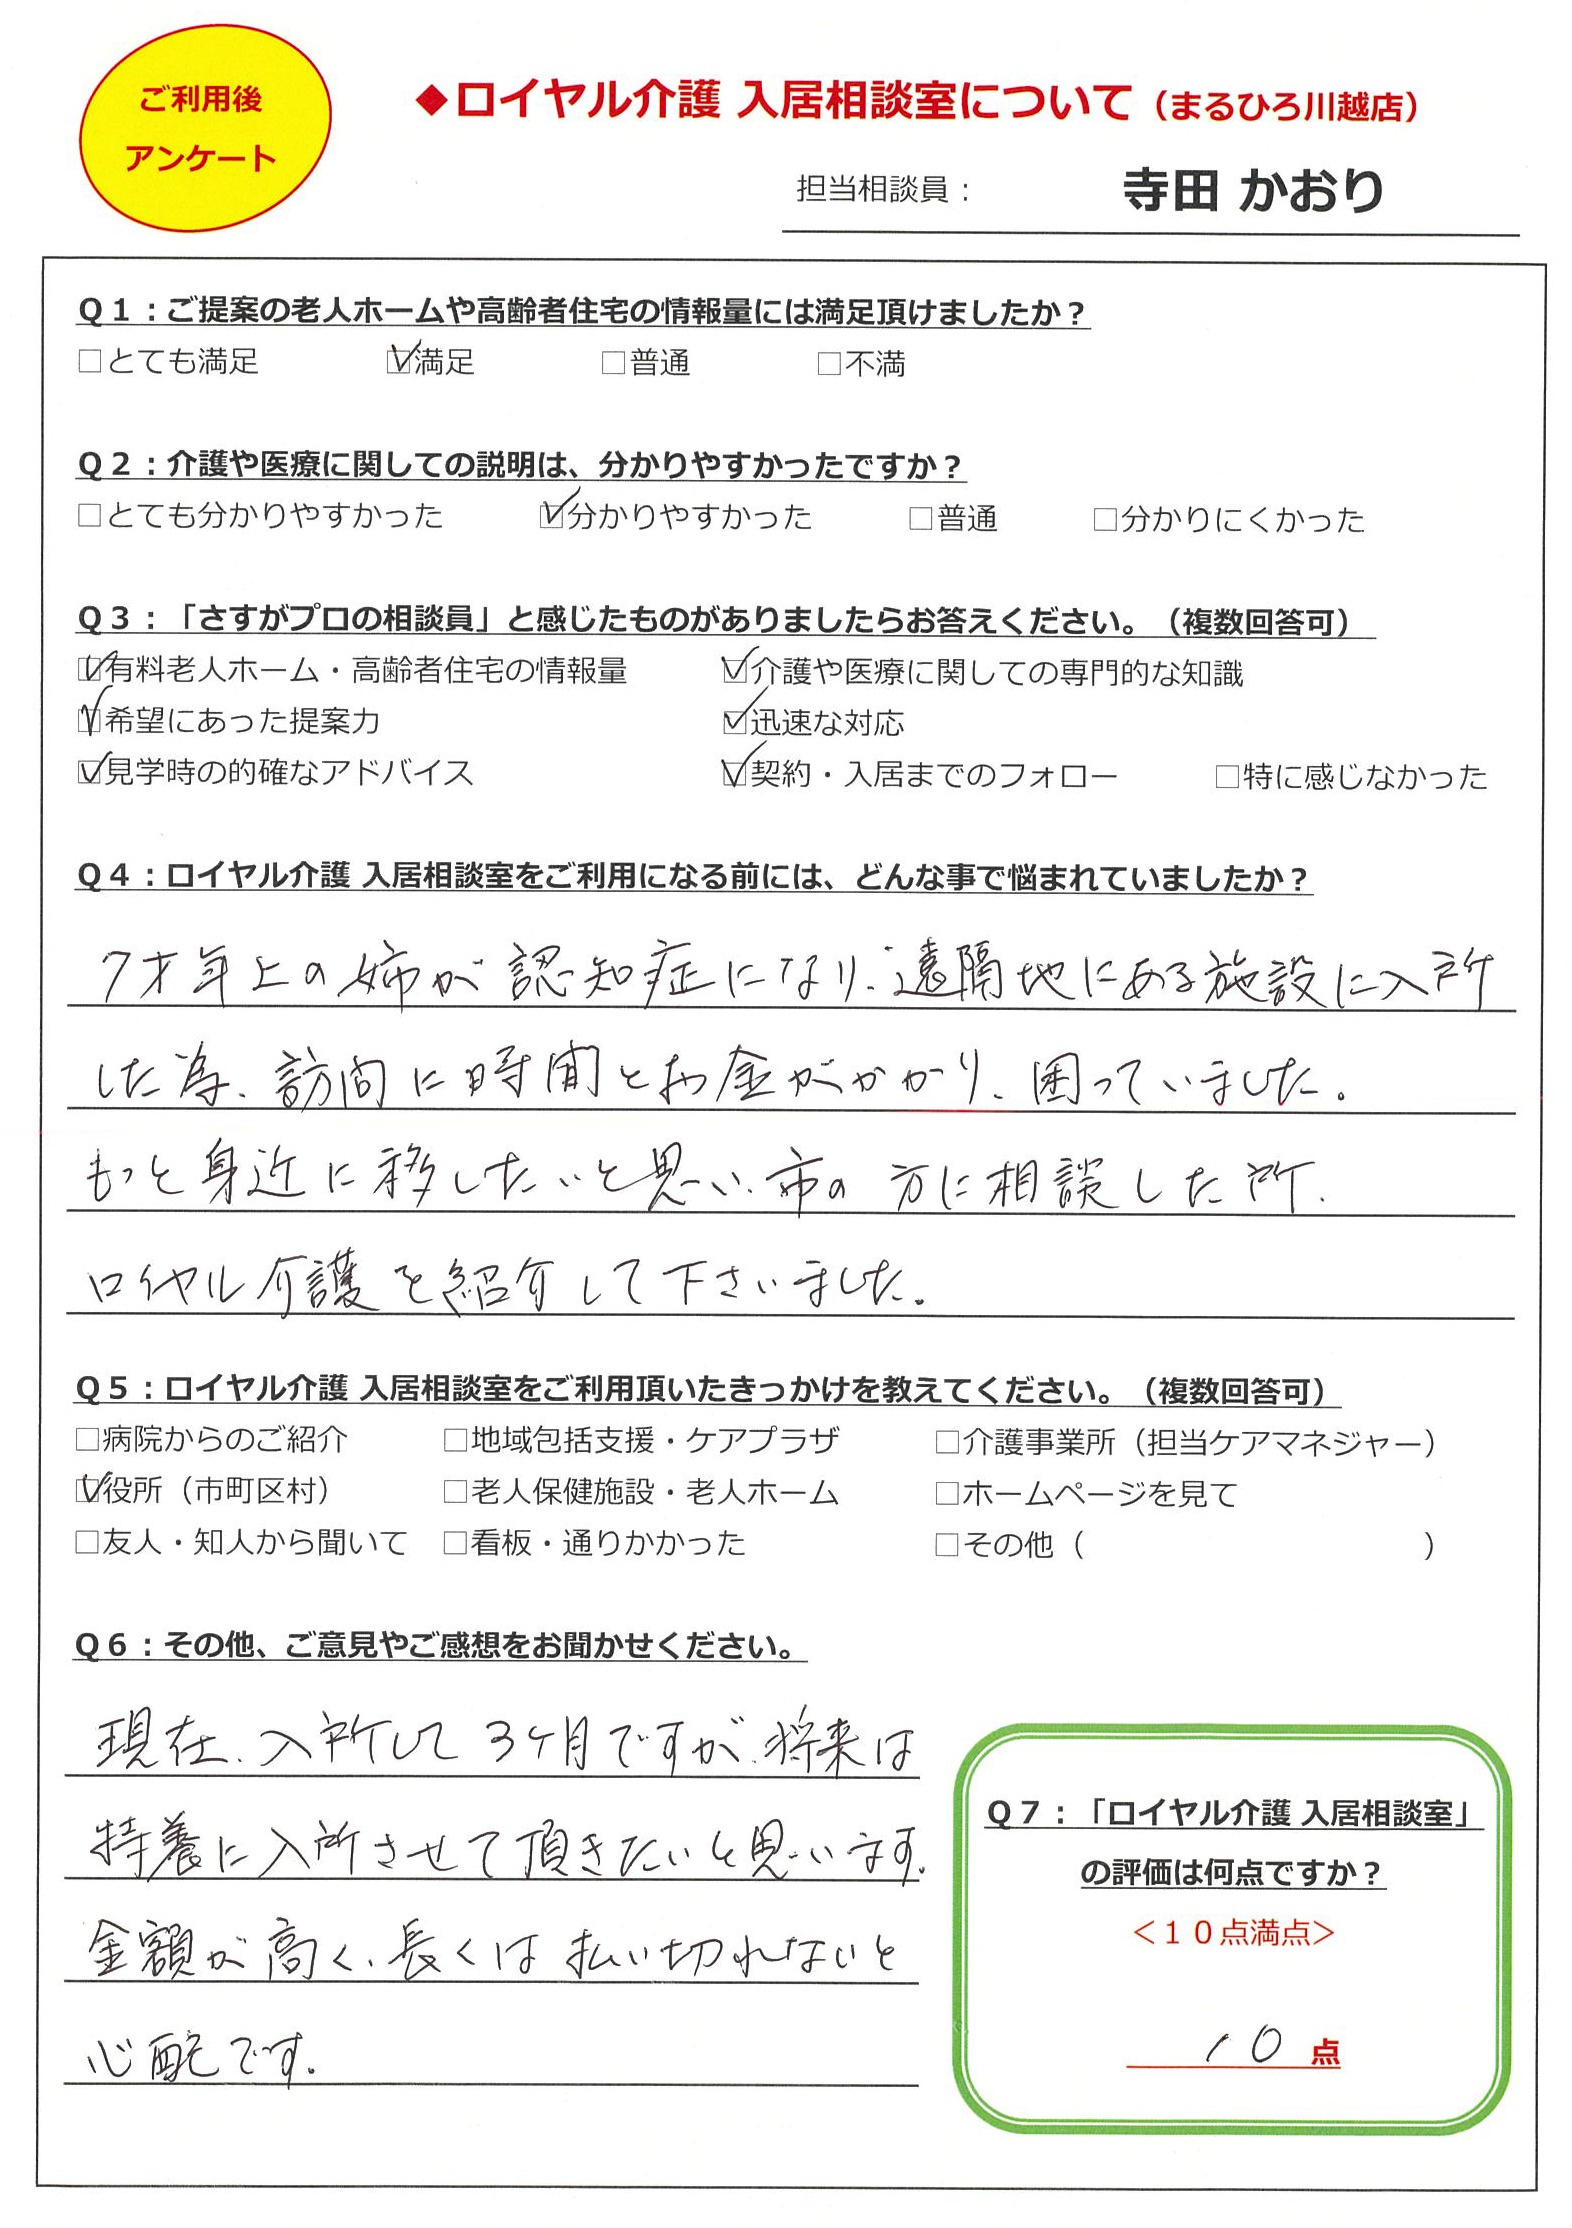 ご利用後
アンケート
◆ロイヤル介護 入居相談室について（まるひろ川越店）
担当相談員： 寺田 かおり
Ｑ１：ご提案の老人ホームや高齢者住宅の情報量には満足頂けましたか？
□とても満足 ☑満足 □普通 □不満
Ｑ２：介護や医療に関しての説明は、分かりやすかったですか？
□とても分かりやすかった ☑分かりやすかった □普通 □分かりにくかった
Ｑ３：「さすがプロの相談員」と感じたものがありましたらお答えください。（複数回答可）
☑有料老人ホーム・高齢者住宅の情報量 ☑介護や医療に関しての専門的な知識
☑希望にあった提案力 ☑迅速な対応
☑見学時の的確なアドバイス ☑契約・入居までのフォロー □特に感じなかった
Ｑ４：ロイヤル介護 入居相談室をご利用になる前には、どんな事で悩まれていましたか？
7才年上の姉が認知症になり、遠隔地にある施設に入所
した為、訪問に時間とお金がかかり、困っていました。
もっと身近に移したいと思い、市の方に相談した所、
ロイヤル介護を紹介して下さいました。
Ｑ５：ロイヤル介護 入居相談室をご利用頂いたきっかけを教えてください。（複数回答可）
□病院からのご紹介 □地域包括支援・ケアプラザ □介護事業所（担当ケアマネジャー）
☑役所（市町区村） □老人保健施設・老人ホーム □ホームページを見て
□友人・知人から聞いて □看板・通りかかった □その他（ ）
Ｑ６：その他、ご意見やご感想をお聞かせください。
現在、入所して3ヶ月ですが、将来は
特養に入所させて頂きたいと思います。
金額が高く、長くは払い切れないと
心配です。
Ｑ７：「ロイヤル介護 入居相談室」
の評価は何点ですか？
＜１０点満点＞
10 点